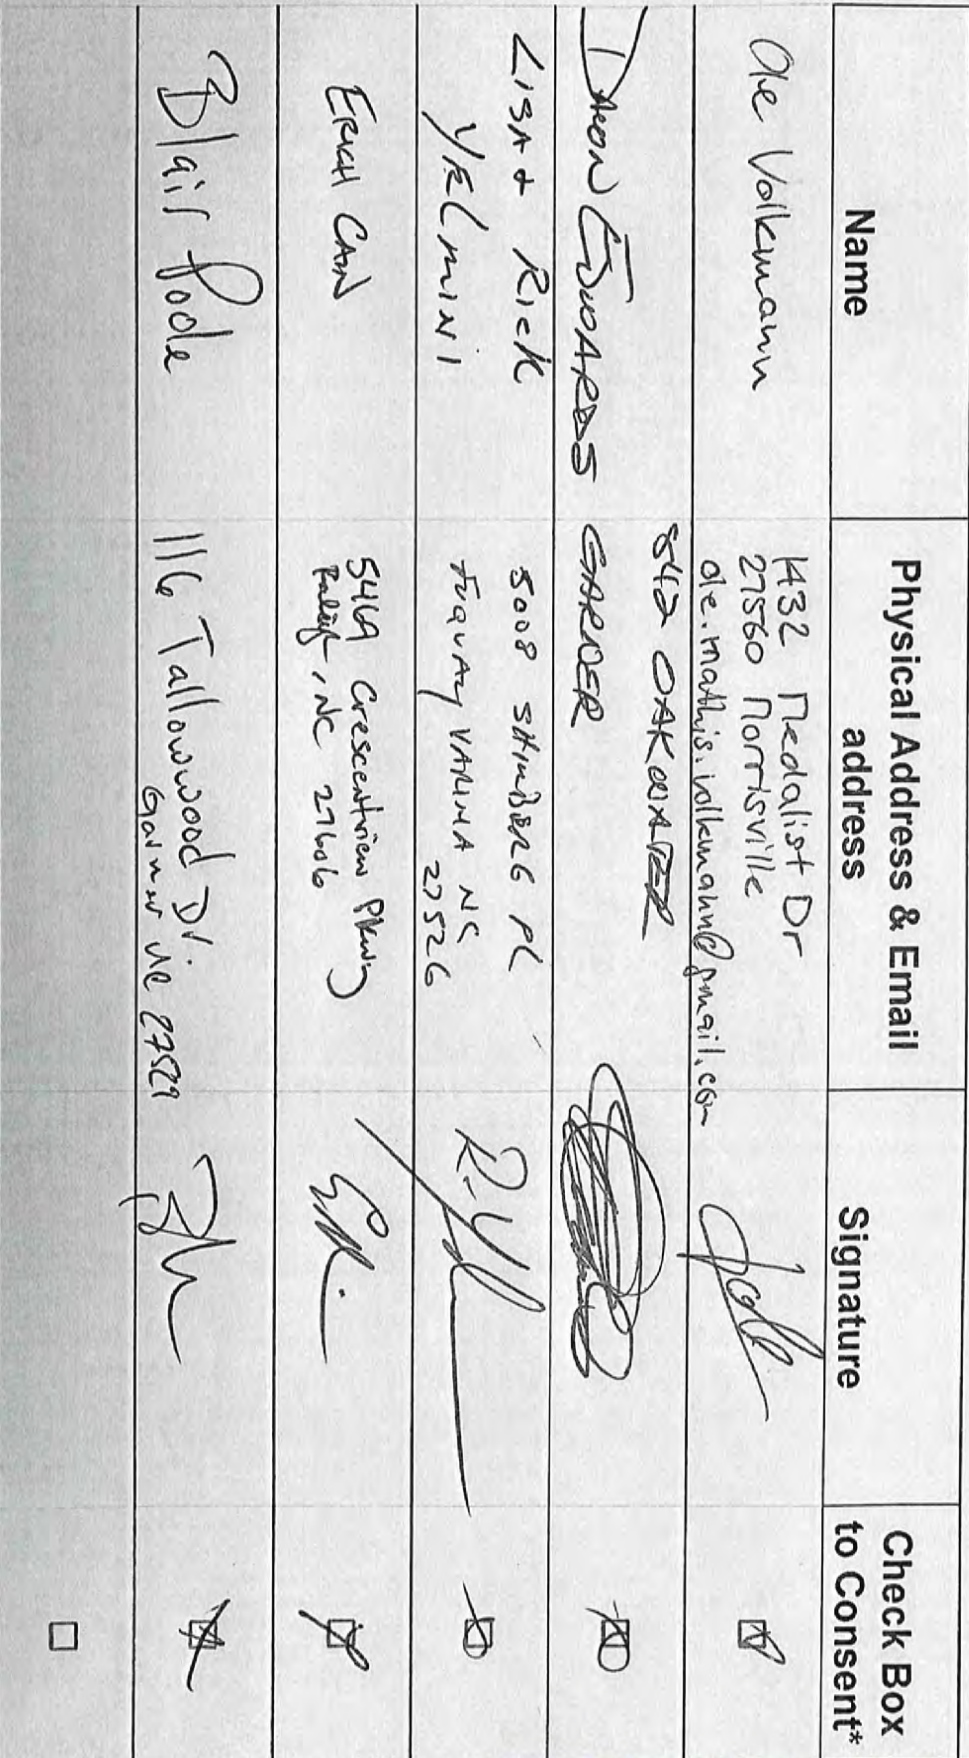 Name
Physical Address & Email
address
Signature
Check Box
to Consent*
Ole Volkmann
1432 Medalist Dr
27560 Morrisville
ole.mathis.volkmann@gmail.com
EDWARDS
842 OAKWATER
GARNER
LISA & RICK
YELMINI
5008 PL
FUQUAY VARINA NC
27526
ERICH CAIN
5469 Crescentview Pkwy
Raleigh, NC 27606
Blair Poole
116 Tallowwood Dr.
Garner NC 27529